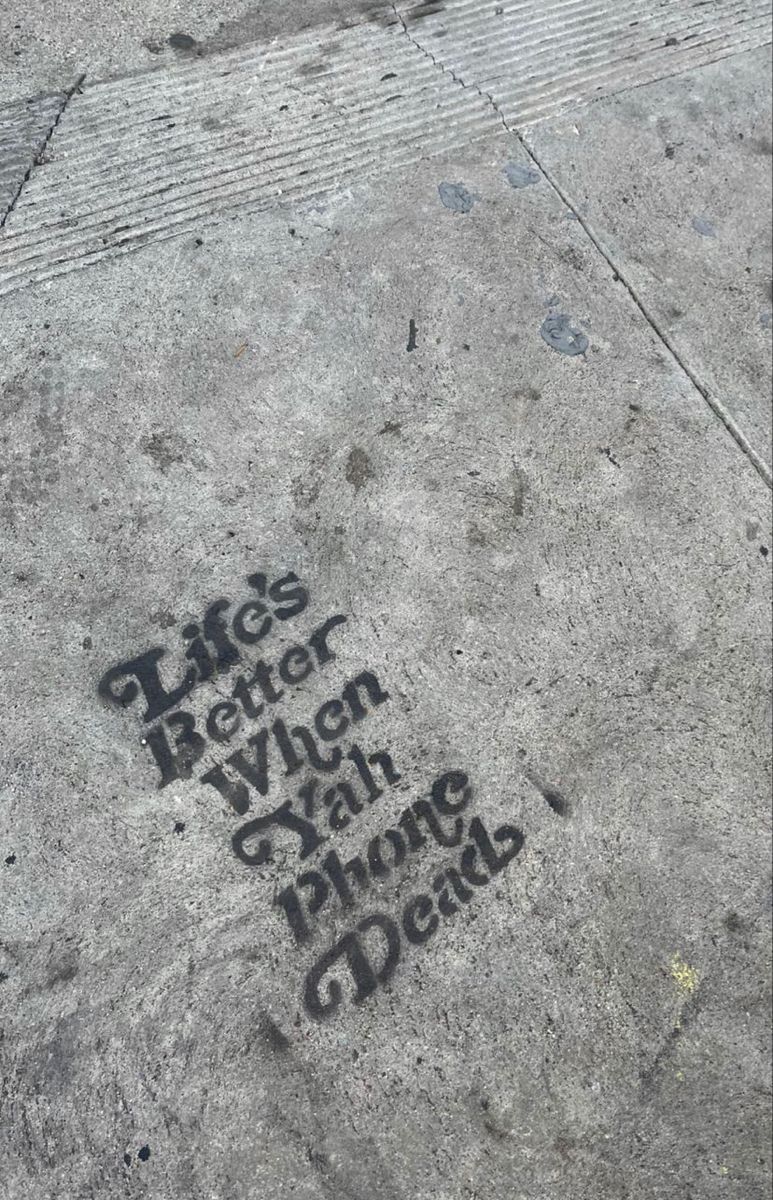 Life's
Better
When
Yah
Phone
Dead